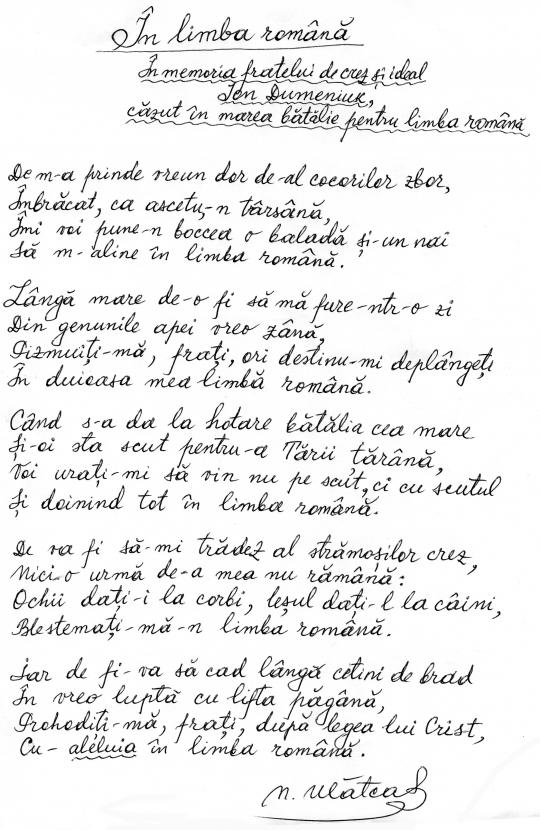 În limba română
În memoria fratelui de crez și ideal
Ion Dumeniuk,
căzut în marea bătălie pentru limba română
De m-a prinde vreun dor de-al cocorilor zbor,
Îmbrăcat, ca ascetu,-n târsână,
Îmi voi pune-n boccea o baladă și-un nai
Să m-aline în limba română.
Lângă mare de-o fi să mă fure-ntr-o zi
Din genunile apei vreo zână,
Pizmuiți-mă, frați, ori destinu-mi deplângeți
În duioasa mea limbă română.
Când s-a da la hotare bătălia cea mare
Și-oi sta scut pentru-a Țării țărână,
Voi urați-mi să vin nu pe scut, ci cu scutul
Și doinind tot în limba română.
De va fi să-mi trădez al strămoșilor crez,
Nici o urmă de-a mea nu rămână:
Ochii dați-i la corbi, leșul dați-l la câini,
Blestemați-mă-n limba română.
Iar de fi-va să cad lângă cetini de brad
În vreo luptă cu lifta păgână,
Prohodiți-mă, frați, după legea lui Crist,
Cu-aleluia în limba română.
N. Mătcaș